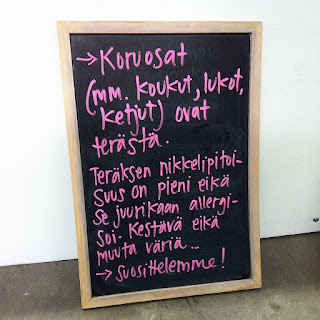 → Koruosat
(mm. koukut, lukot,
ketjut) ovat
terästä.
Teräksen nikkelipitoi-
suus on pieni eikä
se juurikaan allergi-
soi. Kestävä eikä
muuta väriä...
→ Suosittelemme!